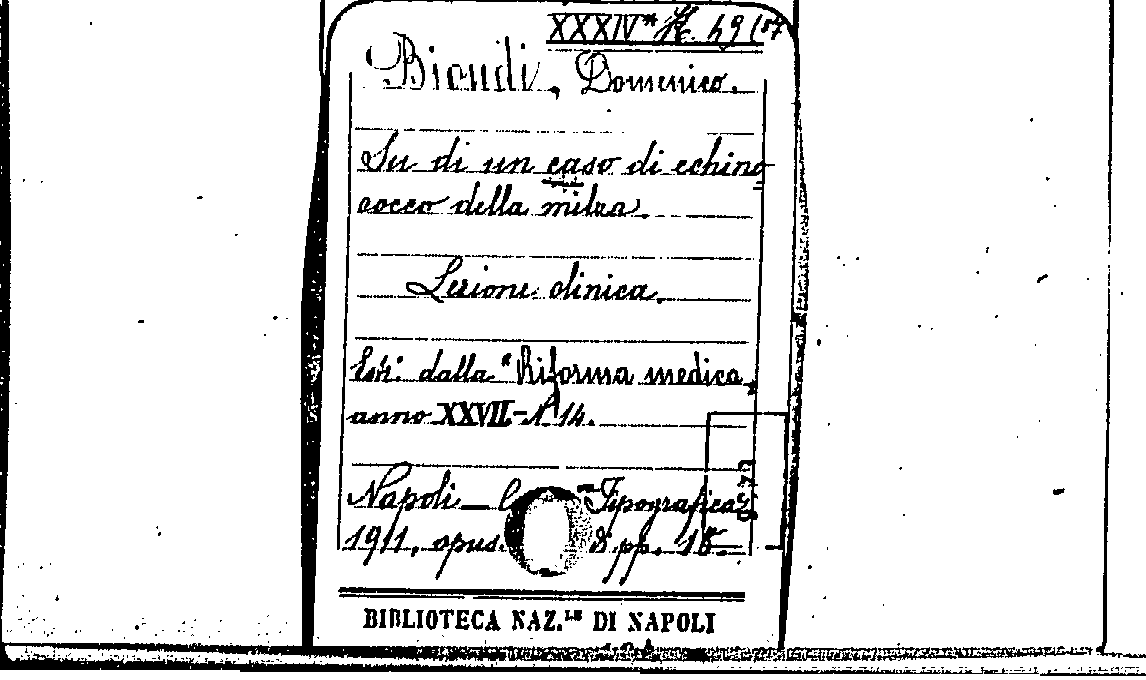 XXXIV* K. 49 (57
Biondi, Domenico.
Su di un caso di echino
cocco della milza.
Lezione clinica.
Estr. dalla "Riforma medica,
anno XXVII - N. 14.
Napoli - Tipografica
1911, opus. 8 pp. 15.
BIBLIOTECA NAZ.LE DI NAPOLI